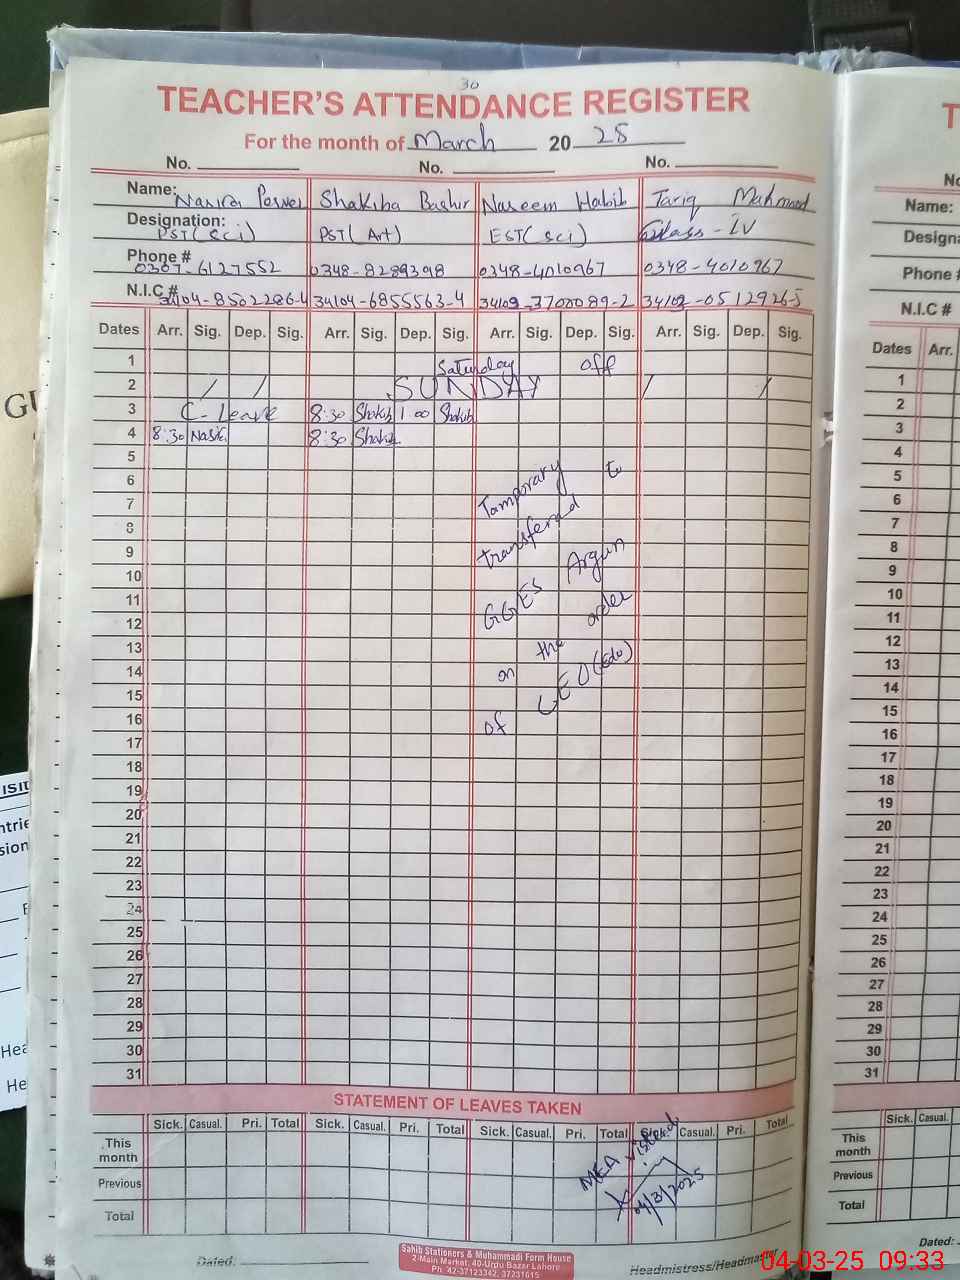 30
TEACHER'S ATTENDANCE REGISTER
For the month of March 20 25
No. No. No.
Name: Nasira Perver Shakiba Bashir Naseem Habib Tariq Mahmood
Designation: PST(Sci) PST(Art) EST(Sci) Class-IV
Phone # 0307-6127552 0348-8289398 0348-4010967 0348-4010967
N.I.C # 34104-8502286-4 34104-6855563-4 34102-3700089-2 34102-0512926-5
Dates Arr. Sig. Dep. Sig. Arr. Sig. Dep. Sig. Arr. Sig. Dep. Sig. Arr. Sig. Dep. Sig.
1 Saturday off
2 / / SUNDAY / /
3 C-Leave 8:30 Shakib 1:00 Shakib
4 8:30 Nasir 8:30 Shakib
5
6
7
8
9
10
11
12
13
14
15
16
17
18
19
20
21
22
23
24
25
26
27
28
29
30
31
Tamporary
transfered to
GGES Argun
on the order
of CEO(Edu)
STATEMENT OF LEAVES TAKEN
Sick. Casual. Pri. Total Sick. Casual. Pri. Total Sick. Casual. Pri. Total Sick. Casual. Pri. Total
This month
Previous
Total
MEA visited
04/3/2025
Dated:
Sahib Stationers & Muhammadi Form House
2-Main Market, 40-Urdu Bazar Lahore
Ph: 42-37123342, 37231615
Headmistress/Headmaster
T
No
Name:
Designa
Phone #
N.I.C #
Dates Arr.
1
2
3
4
5
6
7
8
9
10
11
12
13
14
15
16
17
18
19
20
21
22
23
24
25
26
27
28
29
30
31
Sick. Casual.
This month
Previous
Total
Dated:
GU
ISIT
ntrie
sion
Hea
He
04-03-25 09:33